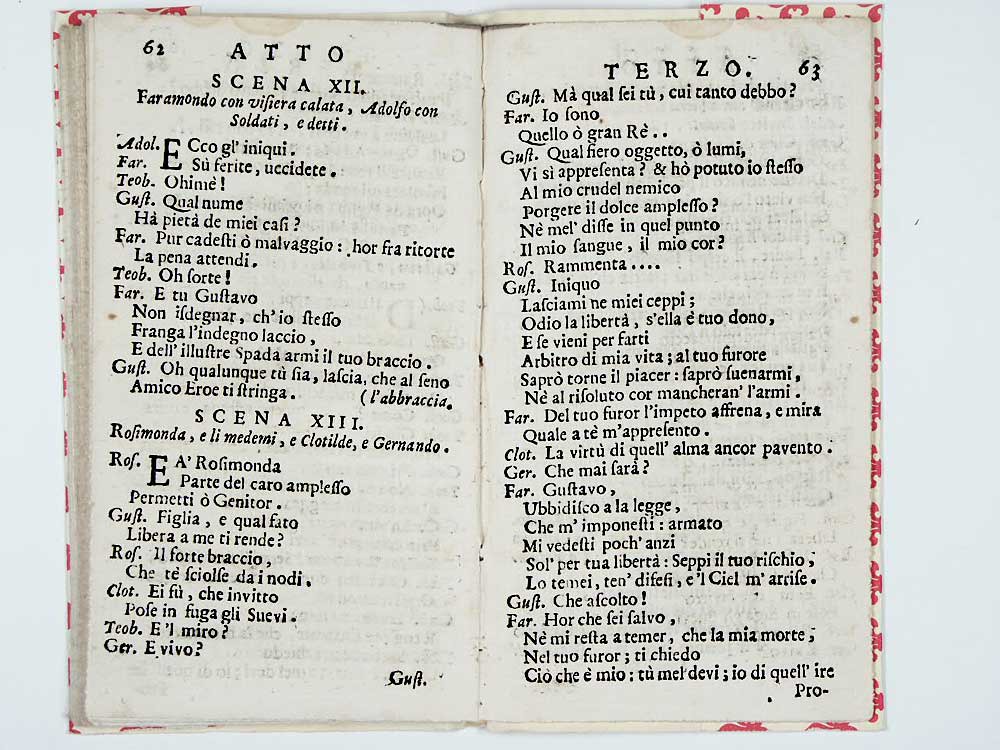 62 ATTO
SCENA XII.
Faramondo con visiera calata, Adolfo con
Soldati, e detti.
Adol. ECco gl' iniqui.
Far. Sù ferite, uccidete.
Teob. Ohimè!
Gust. Qual nume
Hà pietà de miei casi?
Far. Pur cadesti ò malvaggio: hor fra ritorte
La pena attendi.
Teob. Oh sorte!
Far. E tu Gustavo
Non isdegnar, ch' io stesso
Franga l'indegno laccio,
E dell' illustre Spada armi il tuo braccio.
Gust. Oh qualunque tù sia, lascia, che al seno
Amico Eroe ti stringa. (l'abbraccia.
SCENA XIII.
Rosimonda, e li medemi, e Clotilde, e Gernando.
Ros. EA' Rosimonda
Parte del caro amplesso
Permetti ò Genitor.
Gust. Figlia, e qual fato
Libera a me ti rende?
Ros. Il forte braccio,
Che tè sciolse da i nodi.
Clot. Ei fù, che invitto
Pose in fuga gli Suevi.
Teob. E 'l miro?
Ger. E vivo?
Gust.
TERZO. 63
Gust. Mà qual sei tù, cui tanto debbo?
Far. Io sono
Quello ò gran Rè..
Gust. Qual fiero oggetto, ò lumi,
Vi sì appresenta? & hò potuto io stesso
Al mio crudel nemico
Porgere il dolce amplesso?
Nè mel' disse in quel punto
Il mio sangue, il mio cor?
Ros. Rammenta....
Gust. Iniquo
Lasciami ne miei ceppi;
Odio la libertà, s'ella è tuo dono,
E se vieni per farti
Arbitro di mia vita; al tuo furore
Saprò torne il piacer: saprò suenarmi,
Nè al risoluto cor mancheran' l'armi.
Far. Del tuo furor l'impeto affrena, e mira
Quale a tè m'appresento.
Clot. La virtù di quell' alma ancor pavento.
Ger. Che mai sarà?
Far. Gustavo,
Ubbidisco a la legge,
Che m' imponesti: armato
Mi vedesti poch' anzi
Sol' per tua libertà: Seppi il tuo rischio,
Lo temei, ten' difesi, e 'l Ciel m' arrise.
Gust. Che ascolto!
Far. Hor che sei salvo,
Nè mi resta a temer, che la mia morte,
Nel tuo furor; ti chiedo
Ciò che è mio: tù mel' devi; io di quell' ire
Pro-